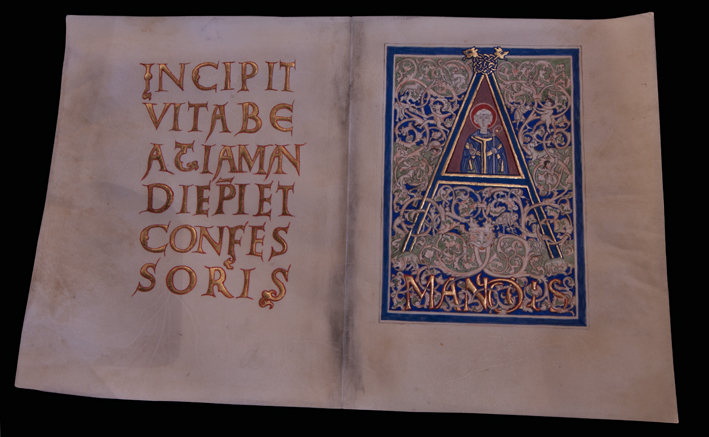 INCIPIT
VITA BE
ATI AMAN
DI EP̅I ET
CONFES
SORIS
A
MANDUS